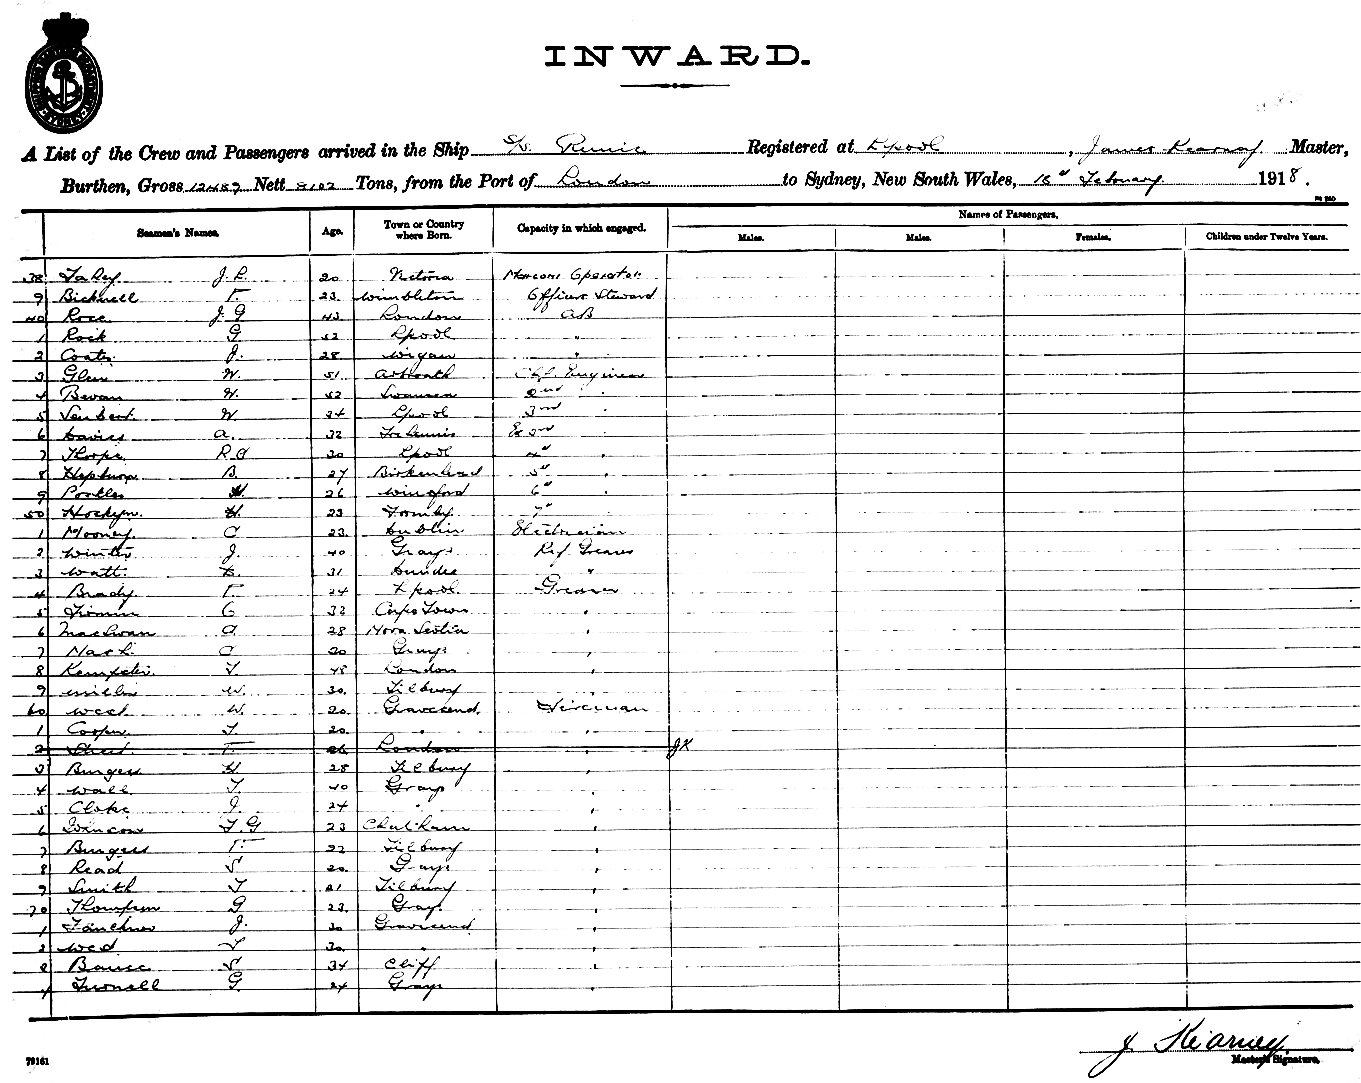 INWARD.
A List of the Crew and Passengers arrived in the Ship S/S. Runic Registered at Lpool, James Kearney Master,
Burthen, Gross 12489 Nett 8102 Tons, from the Port of London to Sydney, New South Wales, 18th February 1918.
Names of Passengers.
Seamen's Names. Age. Town or Country where Born. Capacity in which engaged. Males. Males. Females. Children under Twelve Years.
38 J. L. 20 Victoria Marconi Operator
9 Bicknell F. 23 Wimbleton Officers Steward
40 Rose J. G 43 London AB
1 Rock G 52 Lpool "
2 Coats J. 28 Wigan "
3 Glen W. 51 Arbroath Chf. Engineer
4 Bevan W. 52 Swansea 2nd "
5 W 34 Lpool 3rd "
6 Davies A. 32 Ex 3rd "
7 Thorpe R A 30 Lpool 4th "
8 Hepburn B. 27 Birkenhead 5th "
9 H. 26 Winsford 6th "
50 Hockyn H. 23 Formby 7th "
1 Mooney C 23 Dublin Electrician
2 Winter J. 40 Grays Ref. Greaser
3 Watt B. 31 Dundee "
4 Brady F. 24 Lpool. Greaser
5 C 32 Cape Town "
6 MacSwan A 28 Nova Scotia "
7 Nash C 20 Grays "
8 T 48 London "
9 Miller W. 30. Tilbury "
60 West W. 20. Gravesend. Fireman
1 Cooper T. 20. " "
2 Street F. 26 London " JK
3 Burgess H 28 Tilbury "
4 Wall T. 40 Grays "
5 Cloke J. 24 " "
6 T. G 23 Chatham "
7 Burgess F. 22 Tilbury "
8 Read S 20. Grays "
9 Smith T 21 Tilbury "
70 Thompson G 23. Grays "
1 Faulkner J. 30 Gravesend "
2 T 30. " "
3 S 34 Cliff "
4 G. 24 Grays "
J Kearney
Master's Signature.
79161